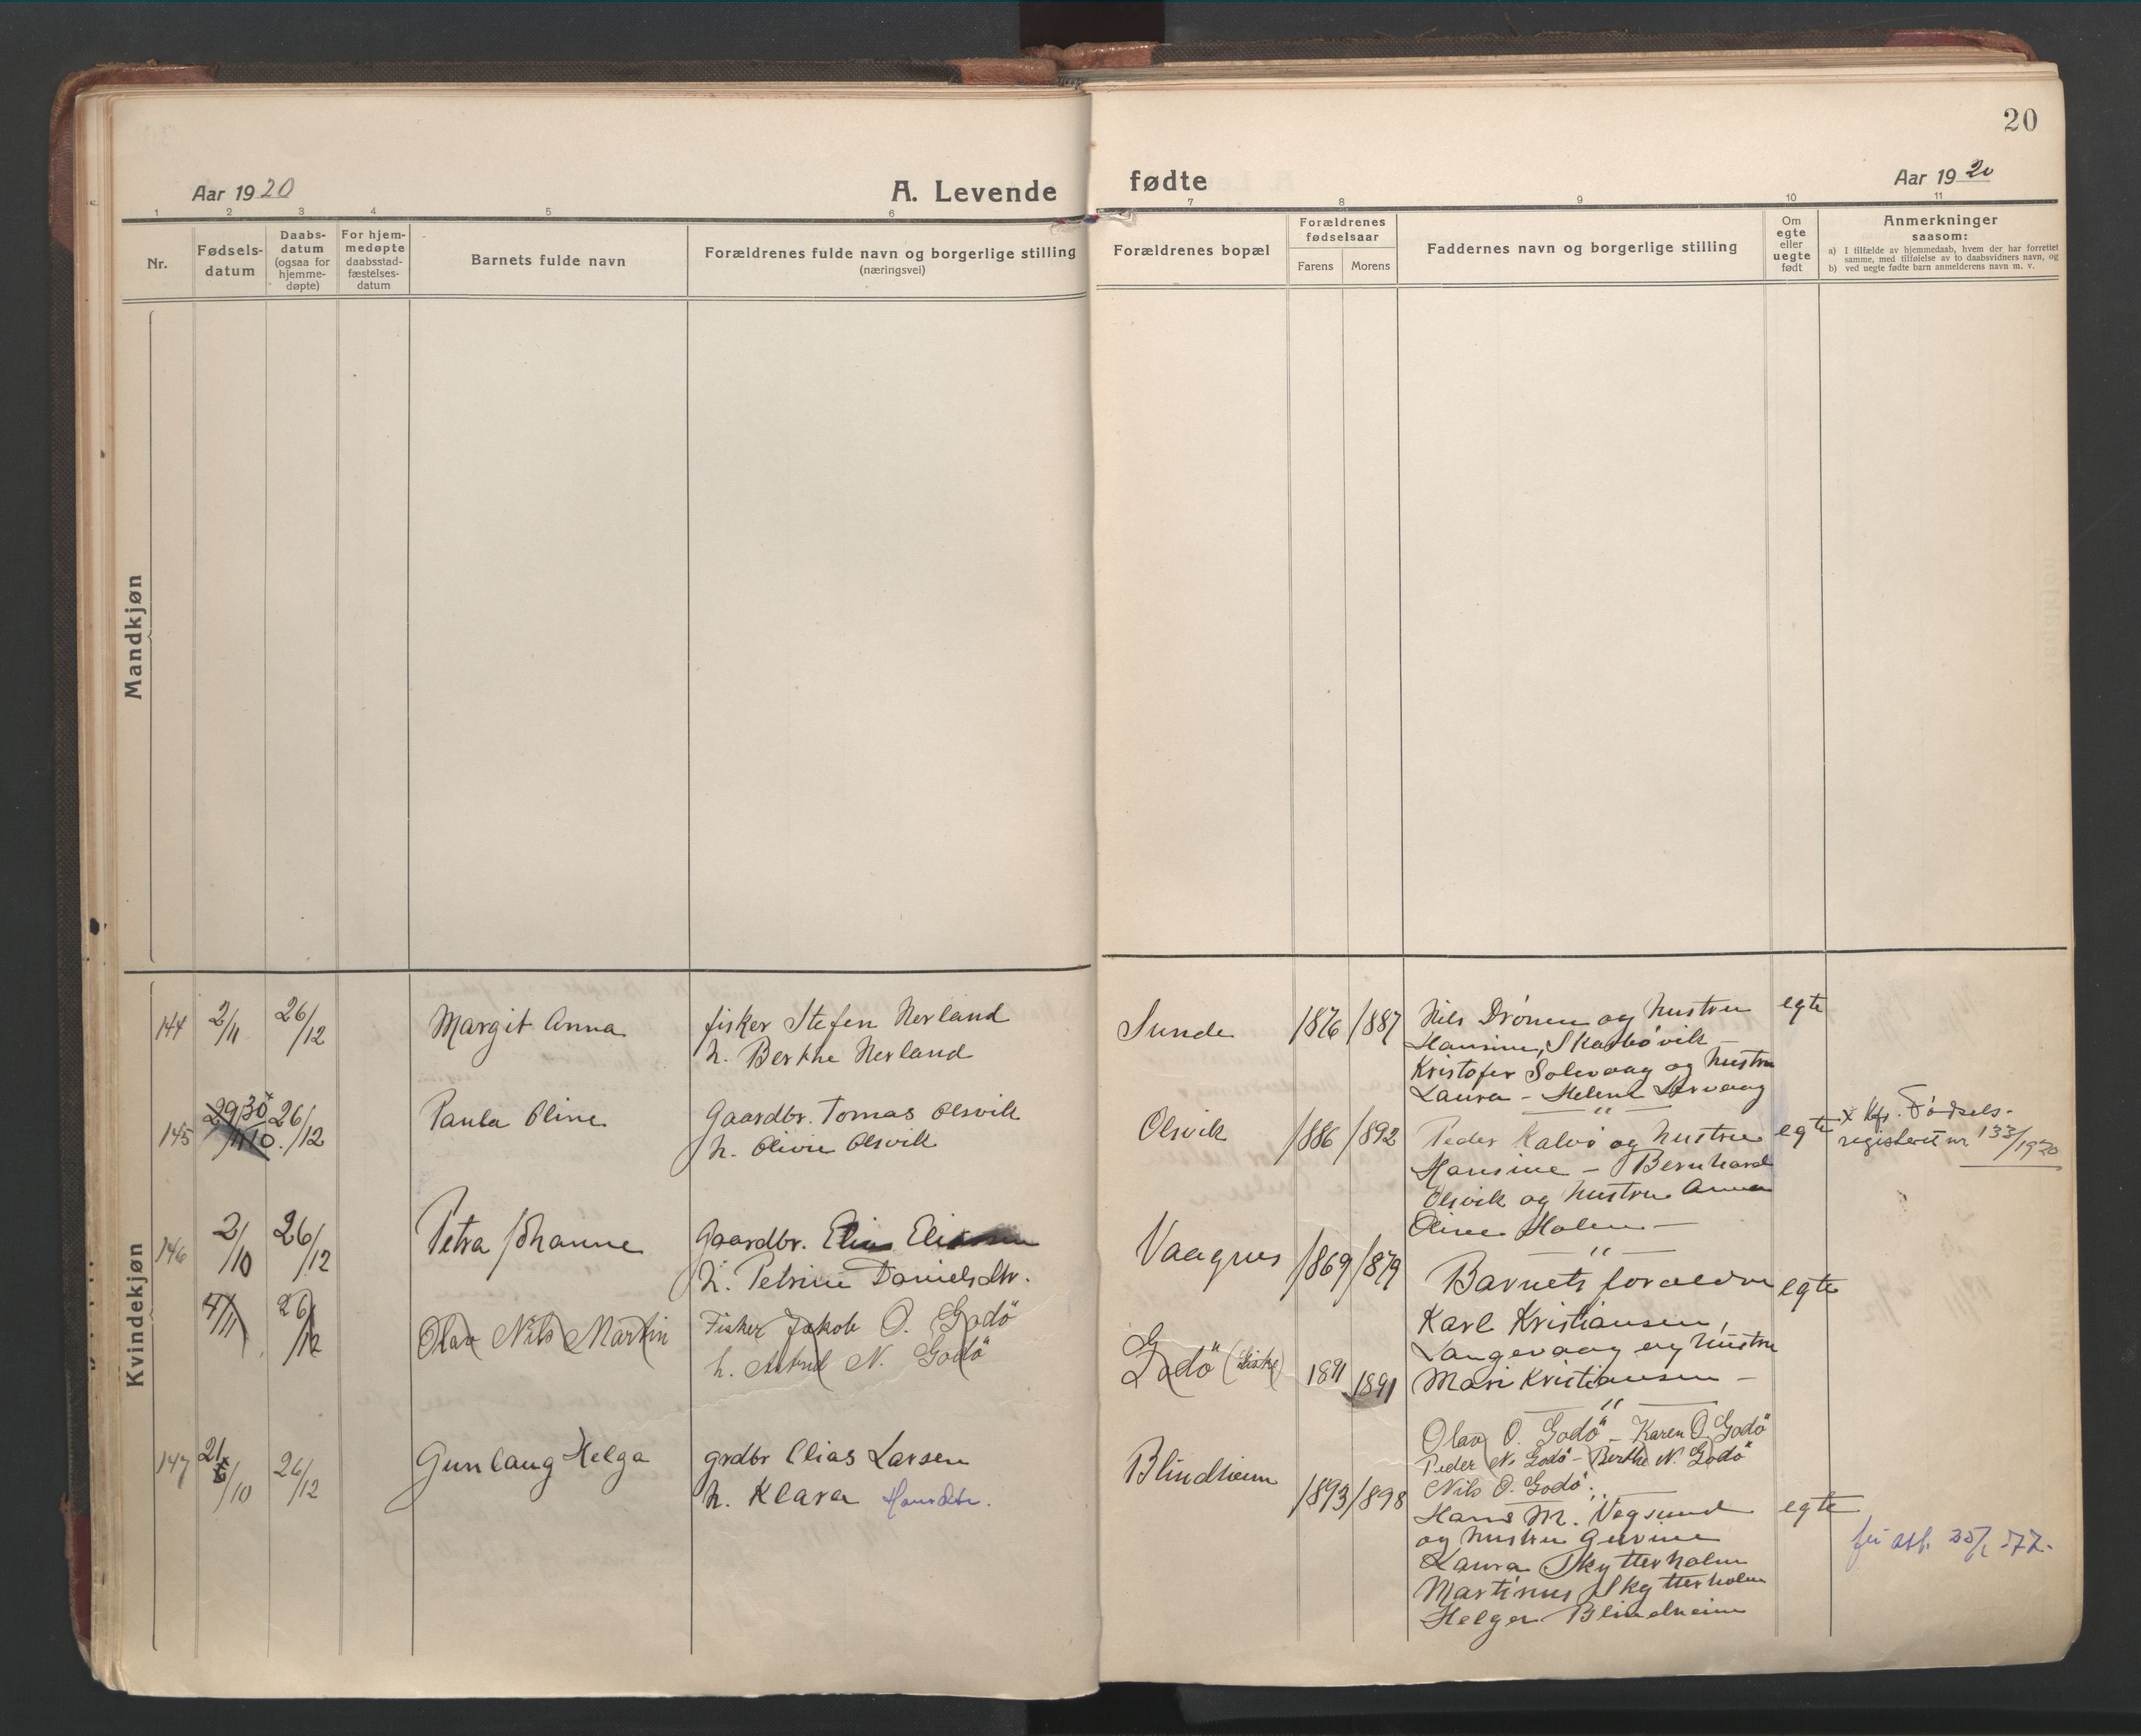 20
Aar 1920
A. Levende
fødte
Aar 1920
1 2 3 4 5 6 7 8 9 10 11
Nr.
Fødsels-
datum
Daabs-
datum
(ogsaa for
hjemme-
døpte)
For hjem-
medøpte
daabsstad-
fæstelses-
datum
Barnets fulde navn
Forældrenes fulde navn og borgerlige stilling
(næringsvei)
Forældrenes bopæl
Forældrenes
fødselsaar
Farens Morens
Faddernes navn og borgerlige stilling
Om
egte
eller
uegte
født
Anmerkninger
saasom:
a) I tilfælde av hjemmedaab, hvem der har forrettet
samme, med tilføielse av to daabsvidners navn, og
b) ved uegte fødte barn anmelderens navn m. v.
Mandkjøn
Kvindekjøn
144 2/11 26/12 Margit Anna fisker Stefen Nerland
h. Berthe Nerland
Sunde 1876 1887 Nils Drönen og hustru egte
Hansine, Skarbövik –
Kristofer Solevaag og hustru
Laura – Helene
145 30/10. 26/12 Paula Oline Gaardbr. Tomas Olsvik
h. Olivie Olsvik
Olsvik 1886 1892 Peder Kalvö og hustru egte
Hansine – Bernhard
Olsvik og hustru Anna
Oline Holen –
x Kfr. Fødsels-
registeret nr 133/1920
146 2/10 26/12 Petra Johanne Gaardbr. Elias
h. Petrine Danielsdtr.
Vaagnes 1869 1879 Barnets foraeldre egte
Karl Kristiansen,
Langevaag og hustru
Mari Kristiansen –
4/11 26/12 Olav Nils Martin Fisker Jakob O. Godö
h. Astrid N. Godö
Godö (Giske) 1891 1891
Olav O. Godö – Karen O. Godö
Peder N. Godö – Berthe N. Godö
Nils O. Godö.
147 21/10 26/12 Gunlaug Helga grdbr Elias Larsen
h. Klara Hansdtr.
Blindheim 1893 1898 Hans M. Vegsund egte
og hustru Gurine
Laura Skytterholm
Martinus Skytterholm
Helger Blindheim